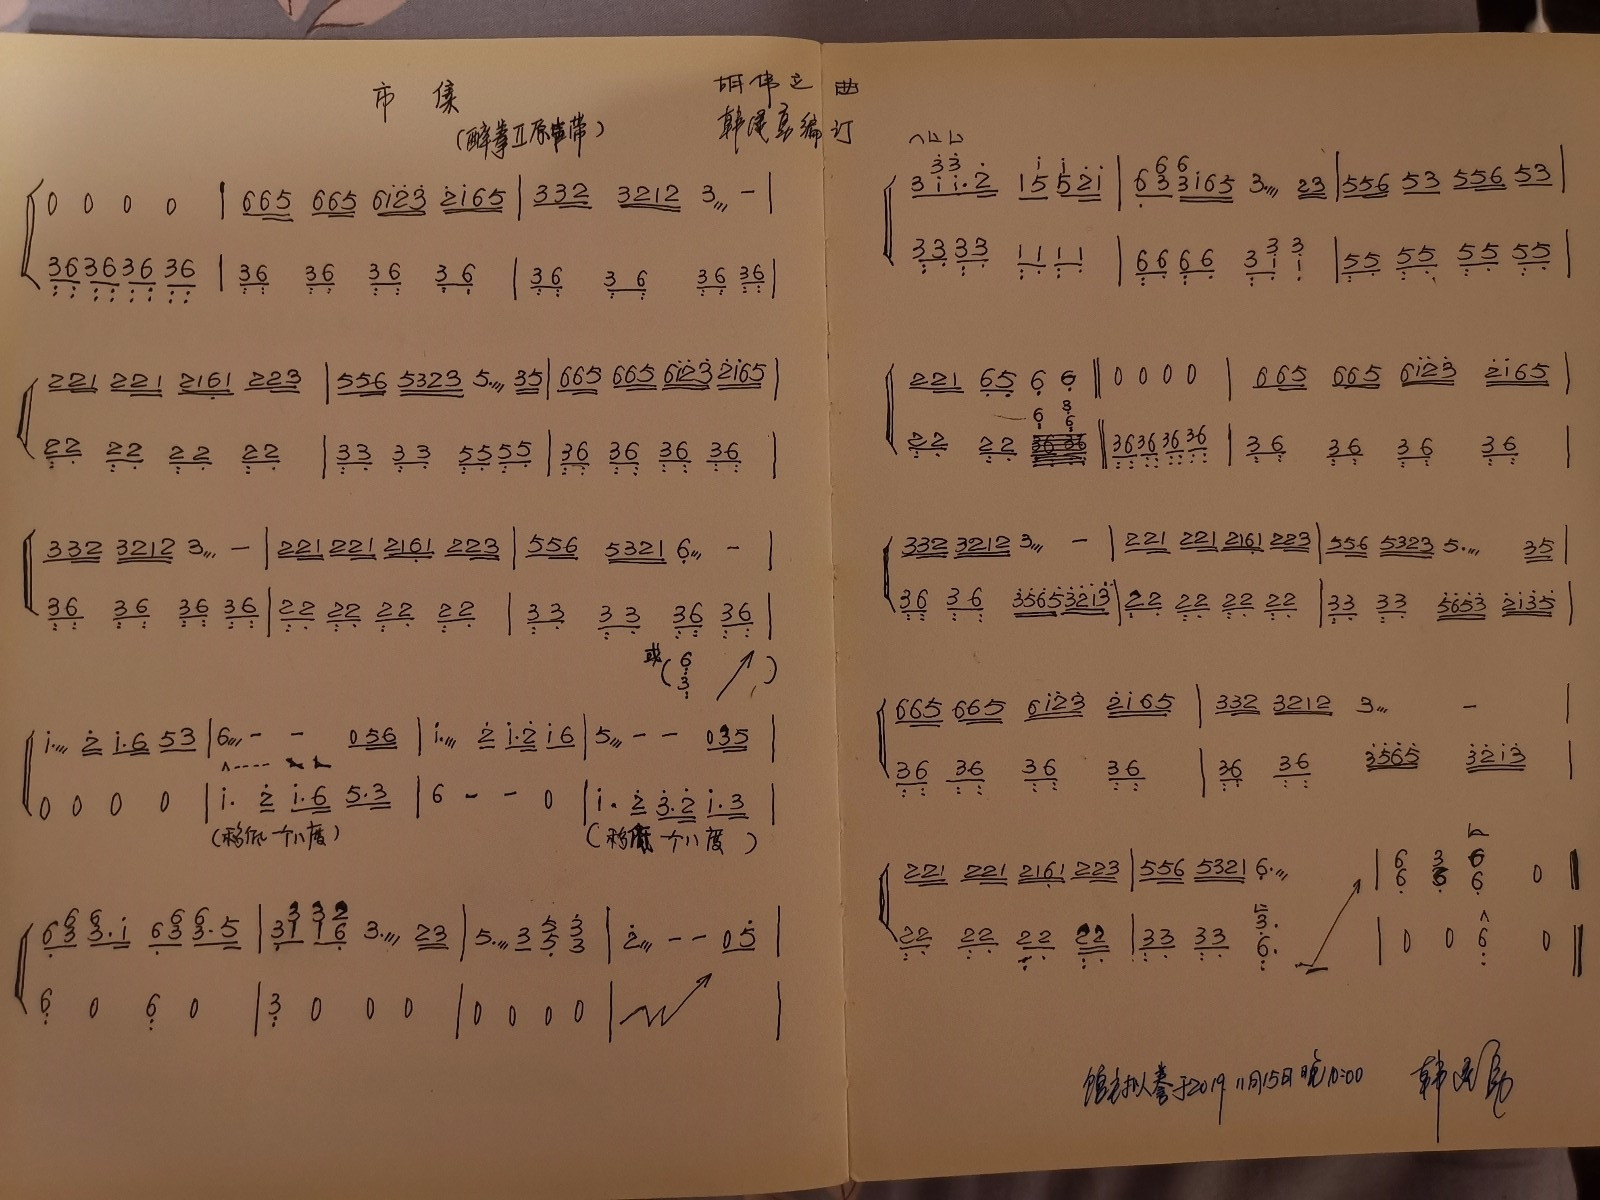 市 集
(醉拳II原声带)
胡伟立 曲
韩建勇编订
0 0 0 0 | 665 665 6123 2165 | 332 3212 3 - |
36 36 36 36 | 36 36 36 36 | 36 36 36 36 |
221 221 2161 223 | 556 5323 5. 35 | 665 665 6123 2165 |
22 22 22 22 | 33 33 55 55 | 36 36 36 36 |
332 3212 3 - | 221 221 2161 223 | 556 5321 6 - |
36 36 36 36 | 22 22 22 22 | 33 33 36 36 |
或 ( 6 3 )
1. 2 1.6 53 | 6 - - 056 | 1. 2 1.2 16 | 5 - - 035 |
0 0 0 0 | 1. 2 1.6 5.3 | 6 - - 0 | 1. 2 3.2 1.3 |
(移低一个八度) (移低一个八度)
6 6 6 6 3 3 2
663 3.1 63 3.5 | 31 16 3. 23 | 5. 3 5 3 | 2 - - 05 |
6 0 6 0 | 3 0 0 0 | 0 0 0 0 |
3 3 6 6
3 1 1.2 15 521 | 63 3165 3. 23 | 556 53 556 53 |
33 33 11 11 | 66 66 31 1 | 55 55 55 55 |
221 65 6 6 || 0 0 0 0 | 665 665 6123 2165 |
22 22 || 36 36 36 36 | 36 36 36 36 |
332 3212 3 - | 221 221 2161 223 | 556 5323 5. 35 |
36 36 3565 3213 | 22 22 22 22 | 33 33 5653 2135 |
665 665 6123 2165 | 332 3212 3 - |
36 36 36 36 | 36 36 3565 3213 |
221 221 2161 223 | 556 5321 6. | 6 3 6 0 ||
22 22 22 22 | 33 33 | 0 0 6 0 ||
于2019 11月15日晚10:00